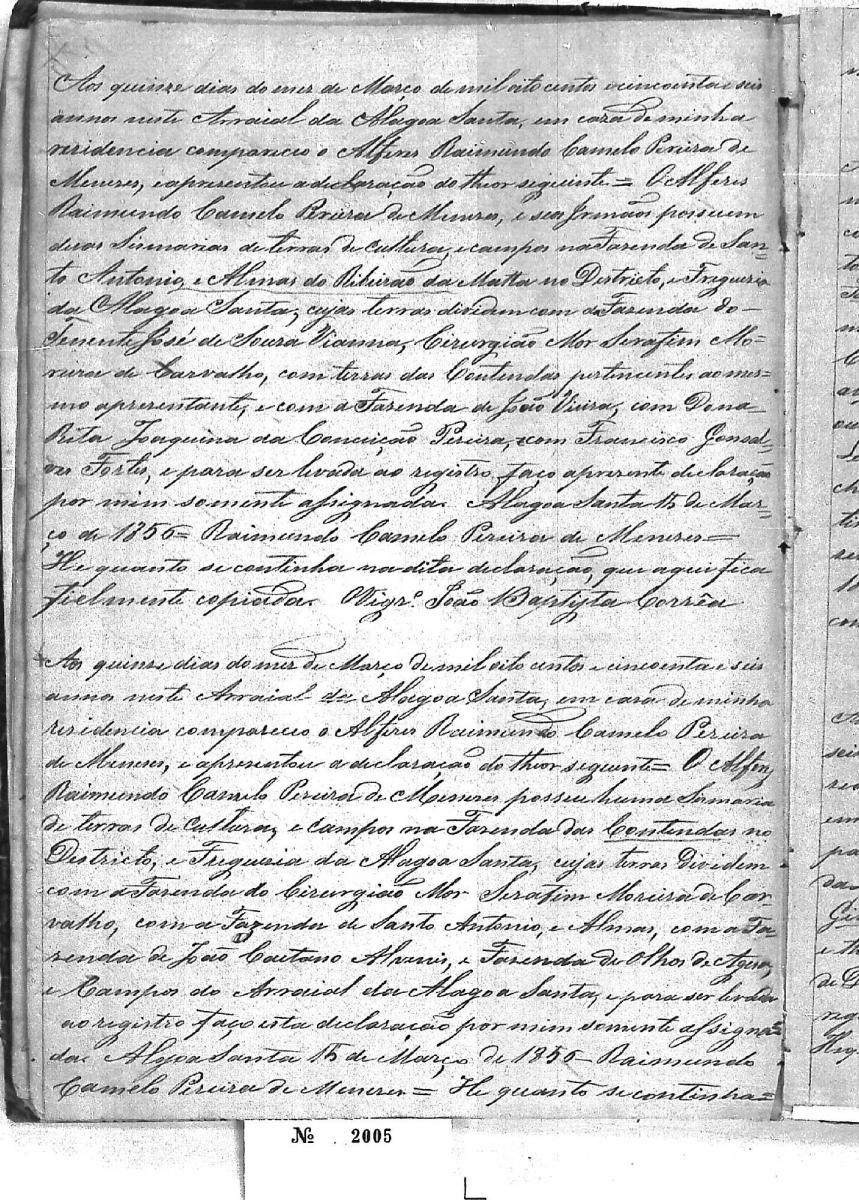 Aos quinze dias do mez de Março de mil oito centos e cincoenta e seis
annos neste Arraial da Alagoa Santa, em caza de minha
residencia compareceo o Alferes Raimundo Camelo Pereira de
Menezes, e apresentou a declaração do theor seguinte = O Alferes
Raimundo Camelo Pereira de Menezes, e seos Irmãos possuem
duas Sismarias de terras de cultura, e campos na Fazenda de San=
to Antonio, e Almas do Ribeirão da Matta no Districto, e Freguezia
da Alagoa Santa, cujas terras dividem com a Fazenda do
Tenente José de Souza Vianna, Cirurgião Mor Serafim Mo=
reira de Carvalho, com terras das Contendas pertencentes ao mes=
mo apresentante, e com a Fazenda de João Vieira, com Dona
Rita Joaquina da Conceição Pereira, e com Francisco Gonsal=
ves Fortes, e para ser levada ao registro, faço a prezente declaração
por mim somente assignada. Alagoa Santa 15 de Mar=
ço de 1856 = Raimundo Camelo Pereira de Menezes =
He quanto se continha na dita declaração, que aqui fica
fielmente copiada. Vigrº. João Baptista Corrêa
Aos quinze dias do mez de Março de mil oito centos e cincoenta e seis
annos neste Arraial da Alagoa Santa, em caza de minha
residencia compareceo o Alferes Raimundo Camelo Pereira
de Menezes, e apresentou a declaração do theor seguente = O Alfers
Raimundo Camelo Pereira de Menezes possue huma Sismaria
de terras de cultura, e campos na Fazenda das Contendas no
Districto, e Freguezia da Alagoa Santa, cujas terras dividem
com a Fazenda do Cirurgião Mor Serafim Moreira de Car
valho, com a Fazenda de Santo Antonio, e Almas, com a Fa=
zenda de João Caetano Alvares, e Fazenda de Olhos de Agoa,
e Campos do Arraial da Alagoa Santa, e para ser levada
ao registro faço esta declaração por mim somente assigna=
da. Algoa Santa 15 de Março de 1856 = Raimundo
Camelo Pereira de Menezes = He quanto se continha =
Nº 2005